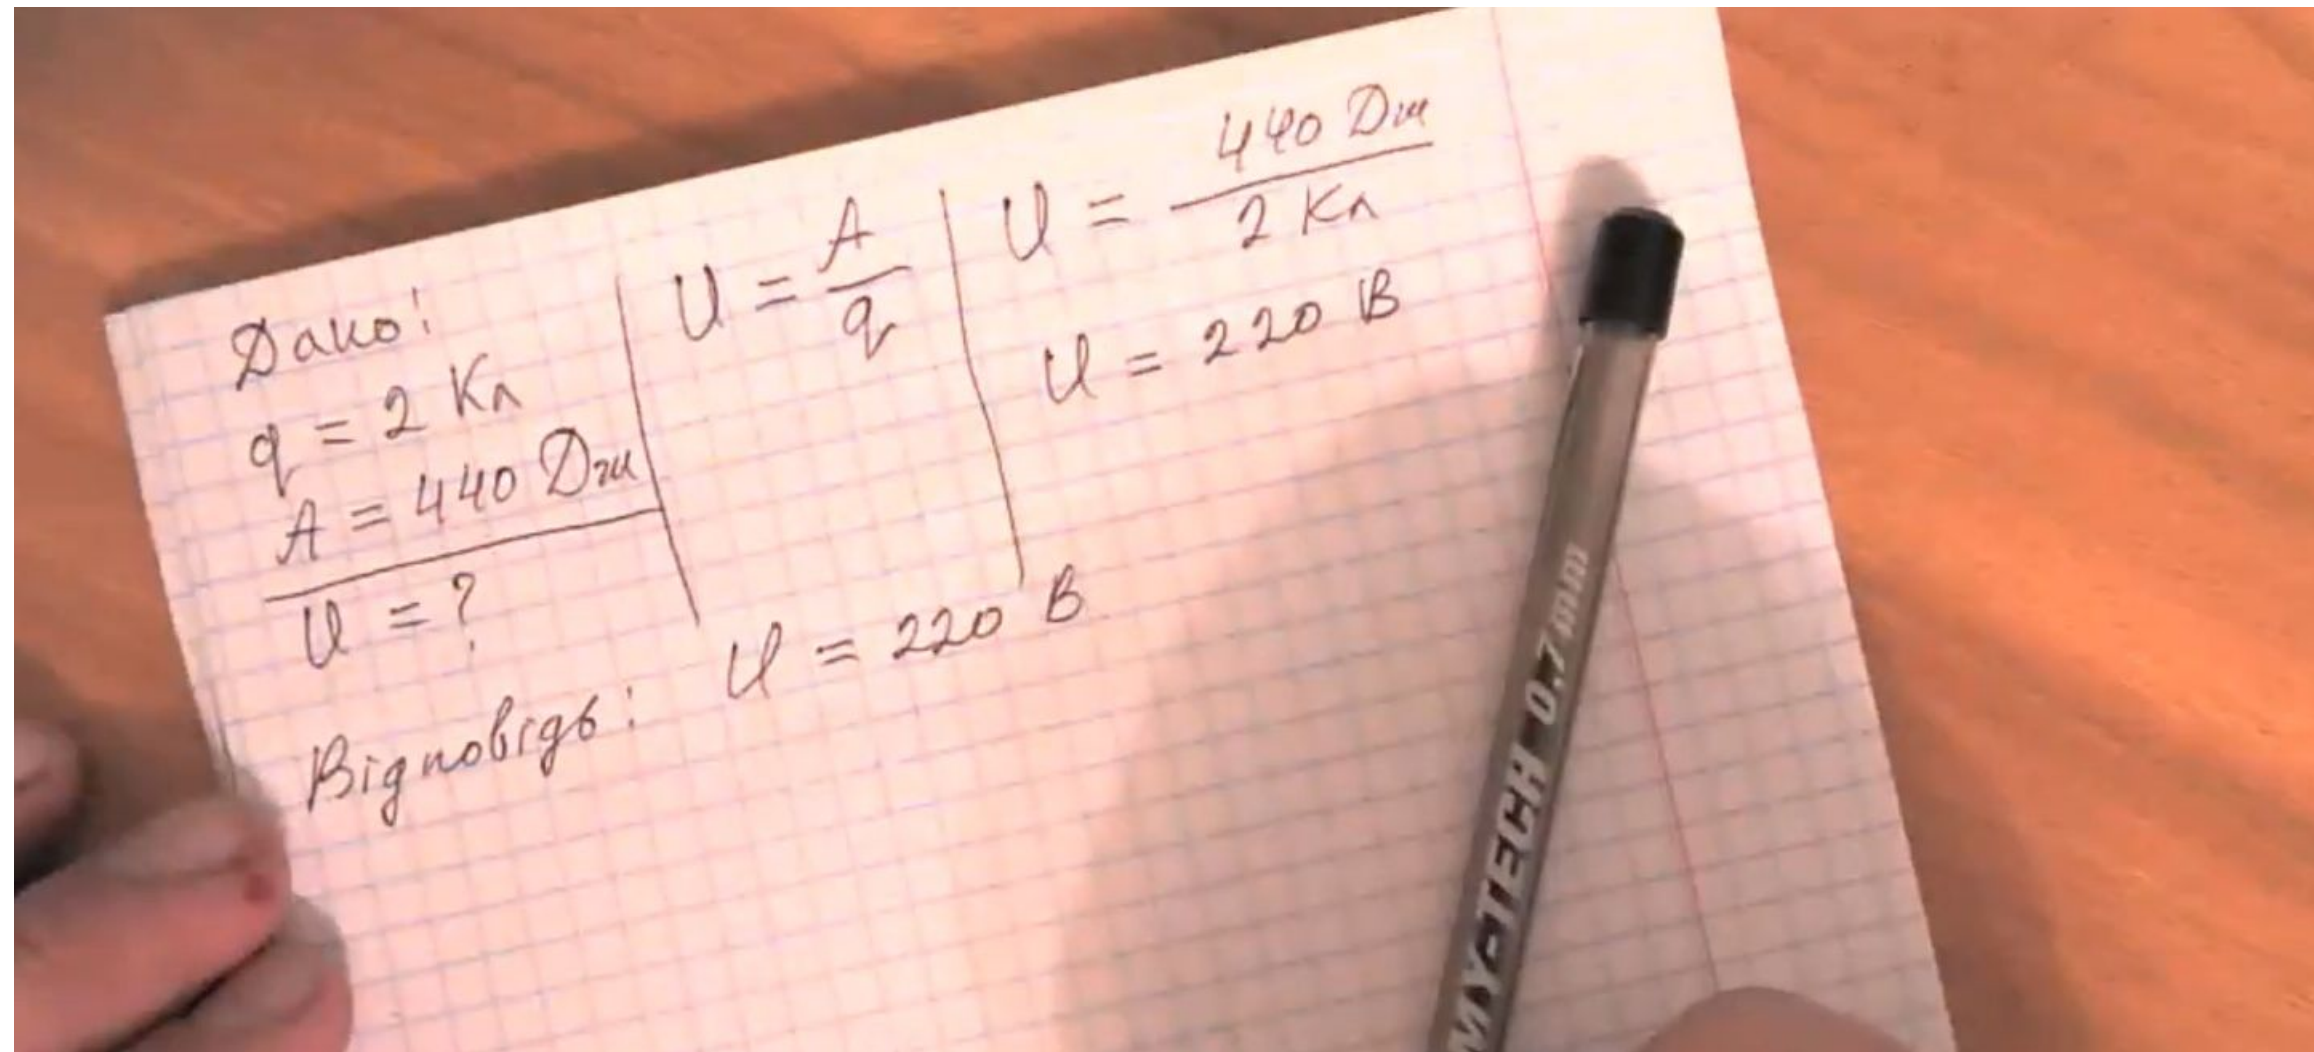 Дано:
q = 2 Кл
A = 440 Дж
U = ?
U = A/q
U = 440 Дж / 2 Кл
U = 220 В
Відповідь: U = 220 В
MAXTECH 0.7mm